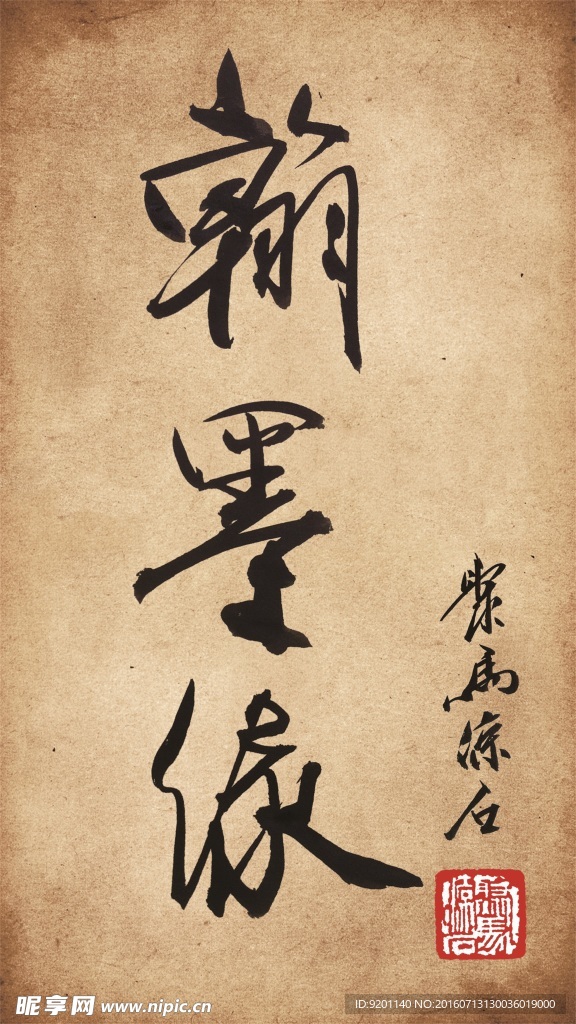 翰墨缘
聚马凉石
昵享网 www.nipic.cn
ID:9201140 NO:20160713130036019000